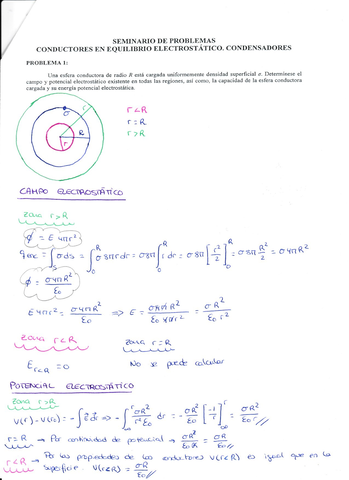 SEMINARIO DE PROBLEMAS
CONDUCTORES EN EQUILIBRIO ELECTROSTÁTICO. CONDENSADORES
PROBLEMA 1:
Una esfera conductora de radio R está cargada uniformemente densidad superficial σ. Determínese el
campo y potencial electrostático existente en todas las regiones, así como, la capacidad de la esfera conductora
cargada y su energía potencial electrostática.
σ r
R
r
r < R
r = R
r > R
CAMPO ELECTROSTÁTICO
zona r > R
φ = E 4π r²
q enc = ∫ σ ds = ∫₀ᴿ σ 8π r dr = σ 8π ∫₀ᴿ r dr = σ 8π [r²/2]₀ᴿ = σ 8π R²/2 = σ 4π R²
φ = σ4πR²/ε₀
E 4π r² = σ4πR²/ε₀ ⇒ E = σ4πR²/ε₀4πr² = σR²/ε₀r²
zona r < R zona r = R
E r<R = 0 No se puede calcular
POTENCIAL ELECTROSTÁTICO
zona r > R
V(r) - V(∞) = -∫ E⃗ dr⃗ ⇒ -∫∞ʳ σR²/r²ε₀ dr = -σR²/ε₀ [-1/r]∞ʳ = σR²/ε₀r //
r = R → Por continuidad de potencial → σR²/ε₀R = σR/ε₀ //
r < R → Por las propiedades de los conductores V(r<R) es igual que en la
superficie. V(r<R) = σR/ε₀ //